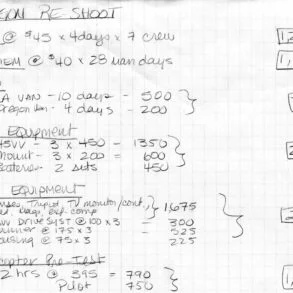 GON RE-SHOOT
@ $45 x 4 days x 7 crew
IEM @ $40 x 28 man days
A VAN - 10 days - 500
Oregon Van - 4 days - 200
EQUIPMENT
45VV - 3 x 450 - 1350
Mount - 3 x 200 = 600
Batteries - 2 sets 450
EQUIPMENT
Lenses, Tripod, TV monitor/cont, 1,675
DRIVE SYST @ 100 x 3 = 300
@ 175 x 3 525
ousing @ 75 x 3 225
copter Pre-Test
2 hrs @ 395 = 790
Pilot 750